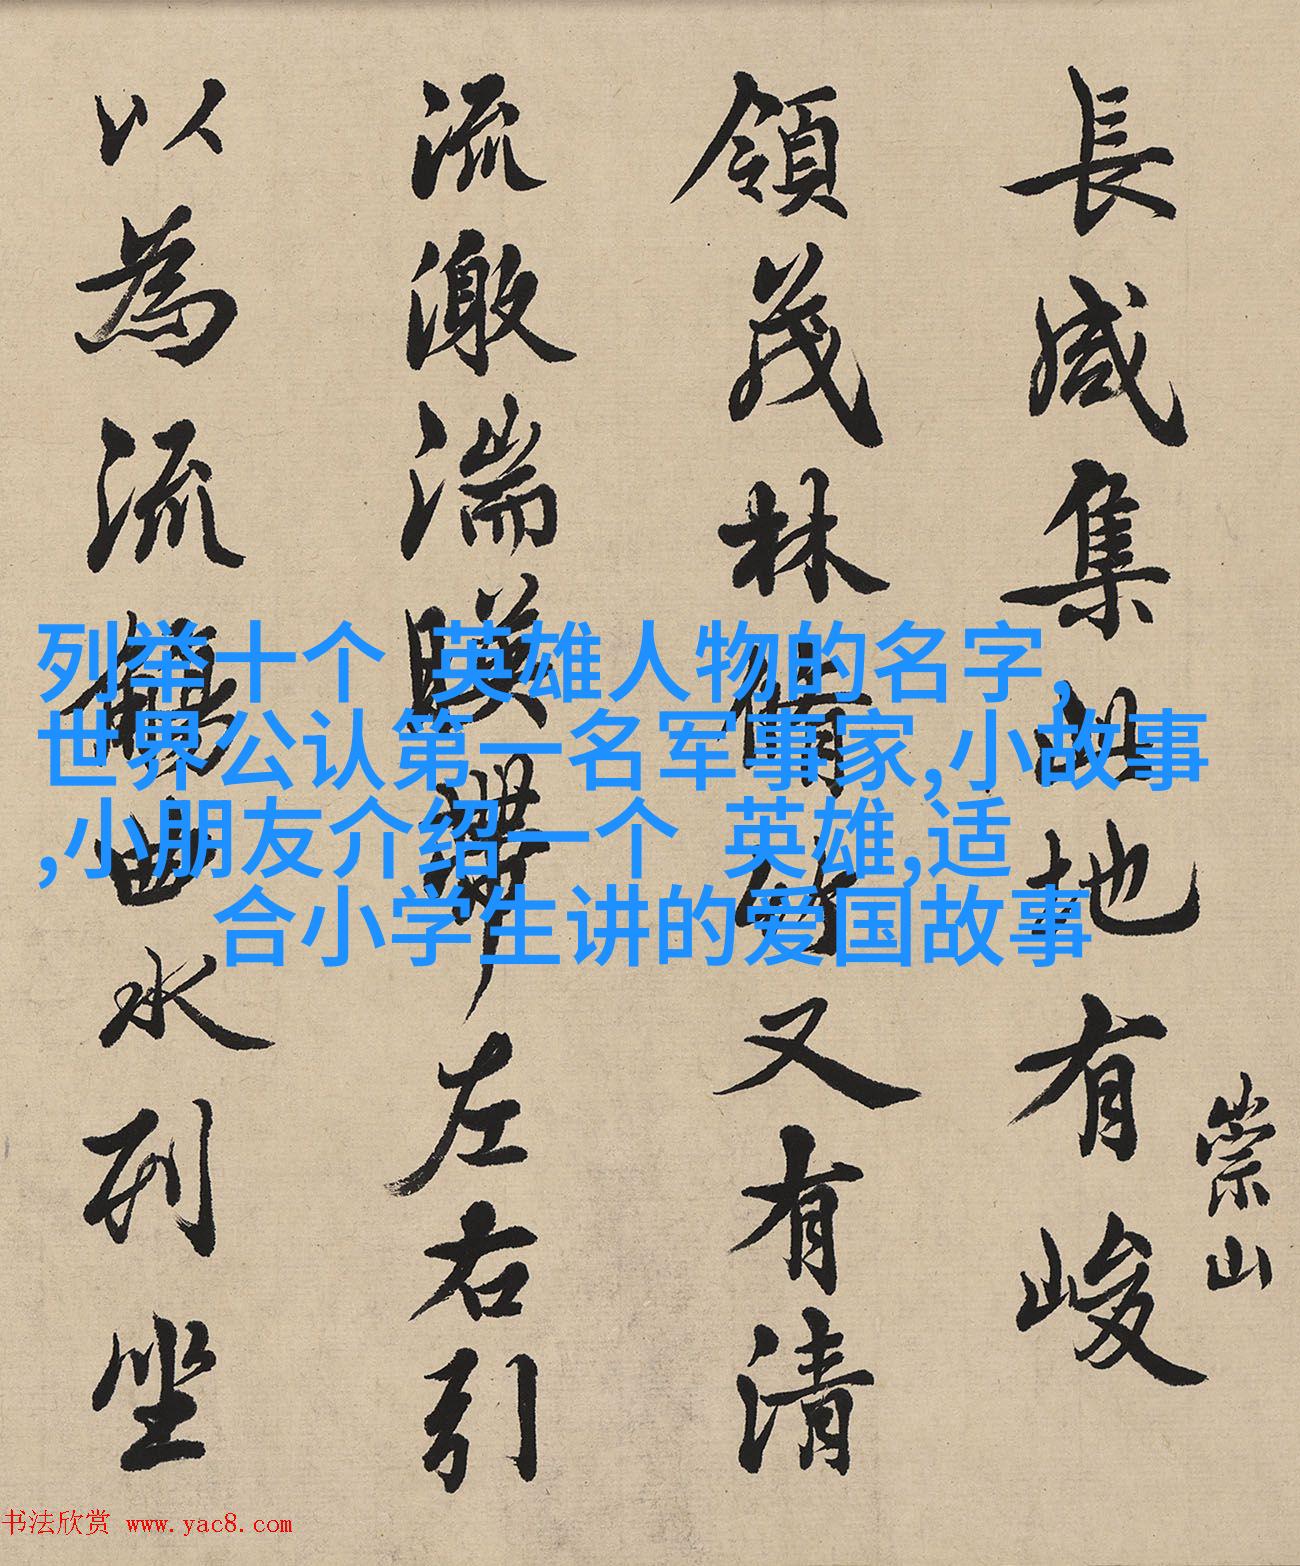 長咸集此地有峻
崇山
領茂林脩竹又有清
流激湍暎帶左右引
以為流觴曲水列坐
列举十个 英雄人物的名字,
世界公认第一名军事家,小故事
,小朋友介绍一个 英雄,适
合小学生讲的爱国故事
书法欣赏 www.yac8.com